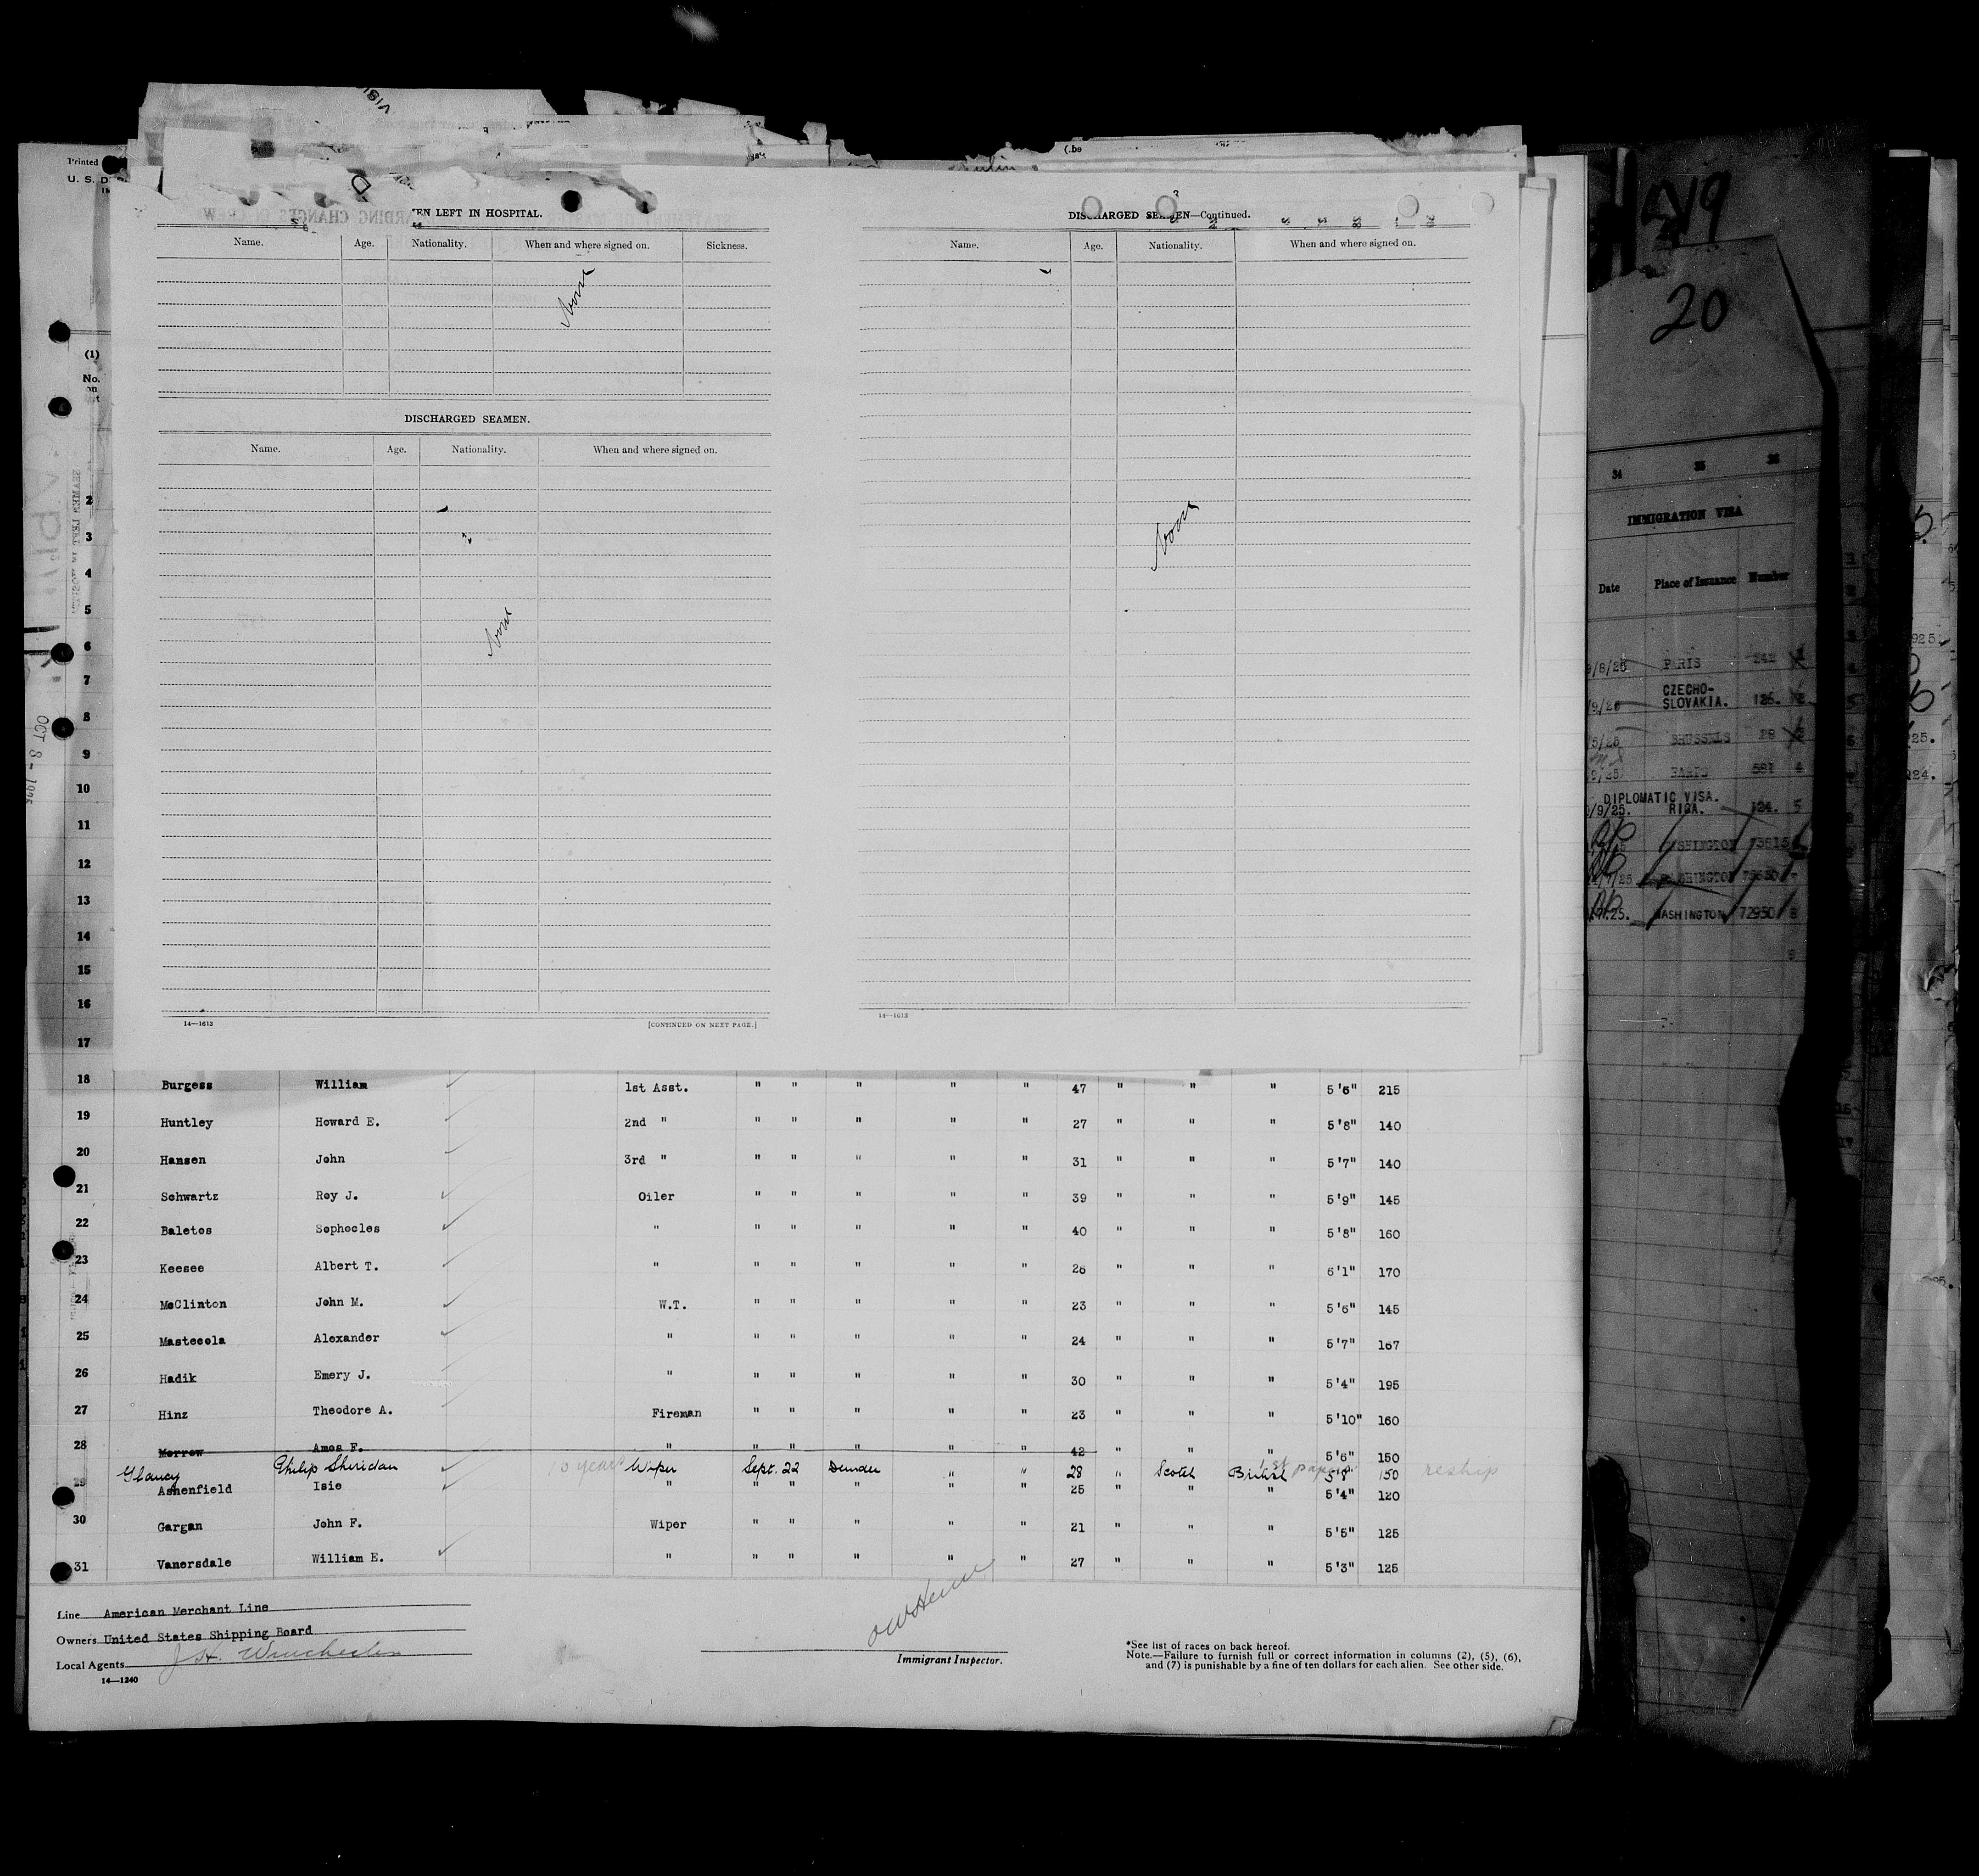 Printed
U. S. D
SEAMEN LEFT IN HOSPITAL.
Name. Age. Nationality. When and where signed on. Sickness.
None
DISCHARGED SEAMEN.
Name. Age. Nationality. When and where signed on.
None
14—1613 [CONTINUED ON NEXT PAGE.]
3
DISCHARGED SEAMEN—Continued.
Name. Age. Nationality. When and where signed on.
None
14—1613
(1)
No.
on
2
3
4
5
6
7
8
9
10
11
12
13
14
15
16
17
OCT 8 - 1925
18 Burgess William 1st Asst. " " " " " 47 " " " 5'6" 215
19 Huntley Howard E. 2nd " " " " " " 27 " " " 5'8" 140
20 Hansen John 3rd " " " " " " 31 " " " 5'7" 140
21 Schwartz Roy J. Oiler " " " " " 39 " " " 5'9" 145
22 Baletos Sophocles " " " " " " 40 " " " 5'8" 160
23 Keesee Albert T. " " " " " " 26 " " " 6'1" 170
24 McClinton John M. W.T. " " " " " 23 " " " 5'6" 145
25 Mastecola Alexander " " " " " " 24 " " " 5'7" 167
26 Hadik Emery J. " " " " " " 30 " " " 5'4" 195
27 Hinz Theodore A. Fireman " " " " " 23 " " " 5'10" 160
28 Morrow Amos F. " " " " " " 42 " " " 5'6" 150
Glancy Philip Sheridan 10 years Wiper Sept. 22 Dundee " " 28 " Scotch British 1st papers 5'8" 150 reship
29 Ashenfield Isie " " " " " " 25 " " " 5'4" 120
30 Gargan John F. Wiper " " " " " 21 " " " 5'5" 125
31 Vanersdale William E. " " " " " " 27 " " " 5'3" 125
Line American Merchant Line
Owners United States Shipping Board
Local Agents J H. Winchester
14—1240
Immigrant Inspector.
*See list of races on back hereof.
Note.—Failure to furnish full or correct information in columns (2), (5), (6),
and (7) is punishable by a fine of ten dollars for each alien. See other side.
20
34 35 36
IMMIGRATION VISA
Date Place of Issuance Number
9/8/25 PARIS 242
CZECHO-
SLOVAKIA. 126.
BRUSSELS 29
PARIS 581 4
DIPLOMATIC VISA.
/9/25. RIGA. 124. 5
WASHINGTON
WASHINGTON
WASHINGTON 72950 8